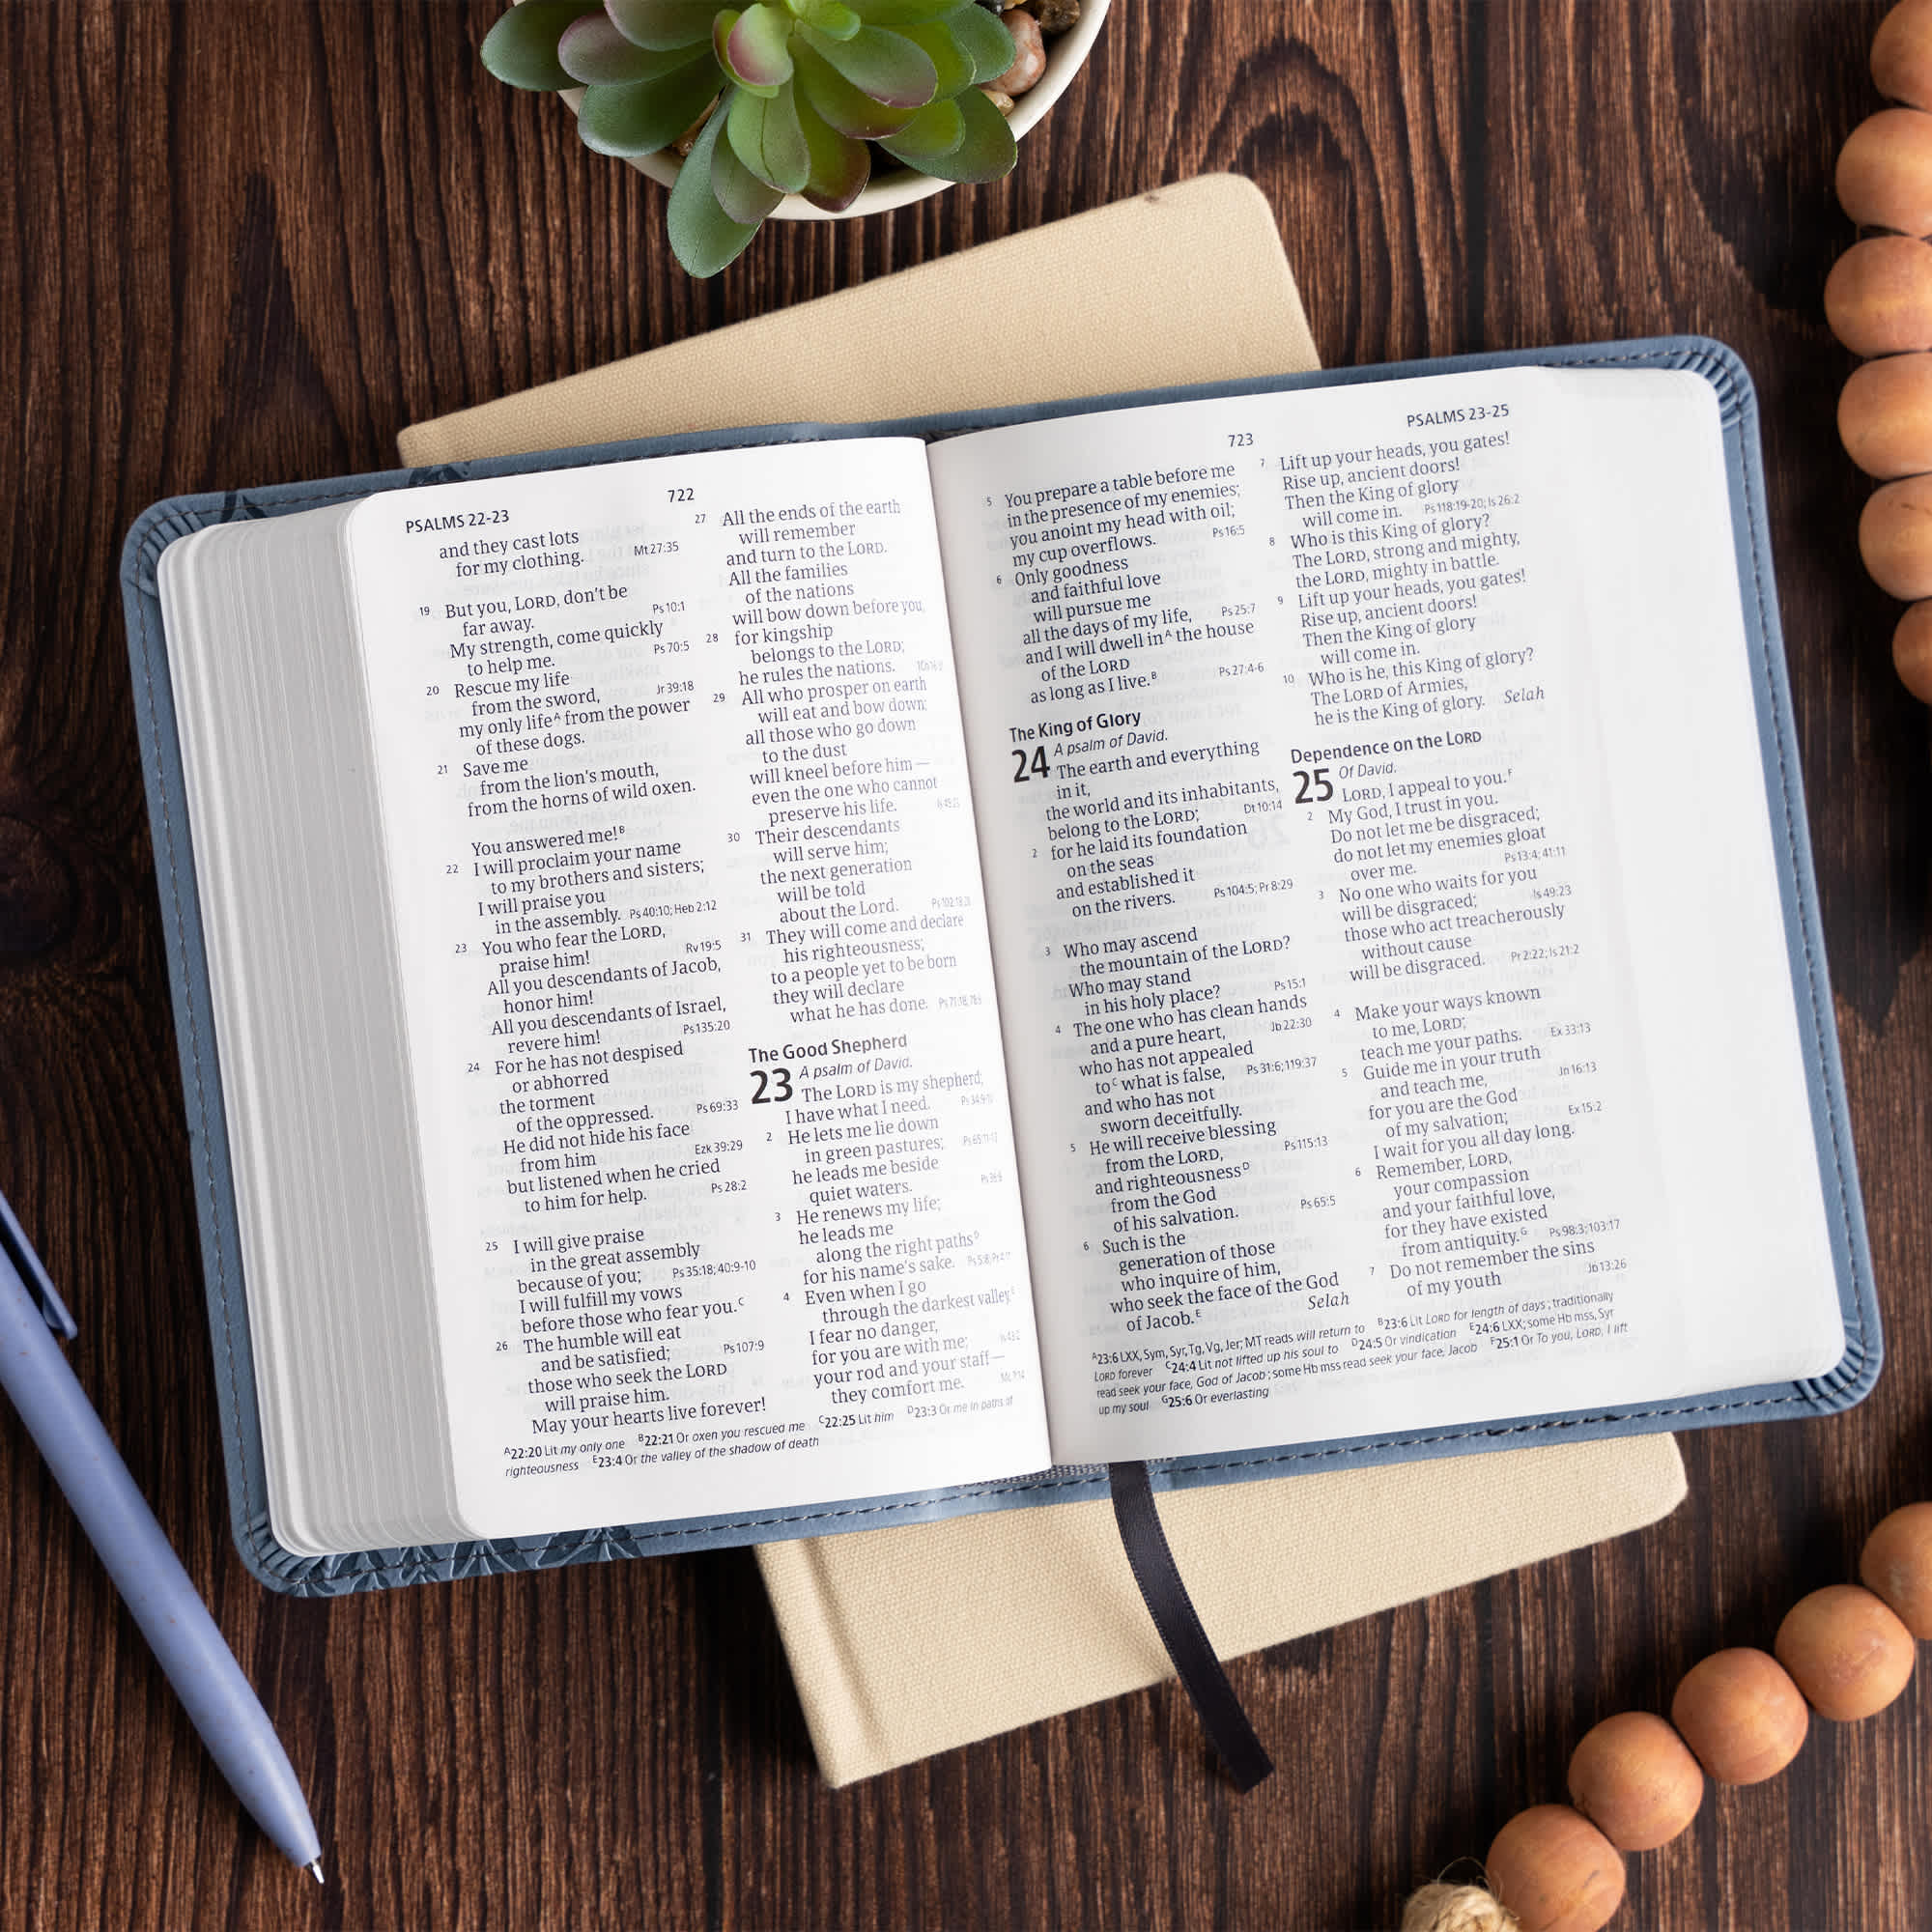 PSALMS 22-23
722
and they cast lots
for my clothing. Mt 27:35
19 But you, LORD, don't be
far away. Ps 10:1
My strength, come quickly
to help me. Ps 70:5
20 Rescue my life
from the sword, Jr 39:18
my only lifeᴬ from the power
of these dogs.
21 Save me
from the lion's mouth,
from the horns of wild oxen.
You answered me!ᴮ
22 I will proclaim your name
to my brothers and sisters;
I will praise you
in the assembly. Ps 40:10; Heb 2:12
23 You who fear the LORD,
praise him! Rv 19:5
All you descendants of Jacob,
honor him!
All you descendants of Israel,
revere him! Ps 135:20
24 For he has not despised
or abhorred
the torment
of the oppressed. Ps 69:33
He did not hide his face
from him Ezk 39:29
but listened when he cried
to him for help. Ps 28:2
25 I will give praise
in the great assembly
because of you; Ps 35:18; 40:9-10
I will fulfill my vows
before those who fear you.ᶜ
26 The humble will eat
and be satisfied; Ps 107:9
those who seek the LORD
will praise him.
May your hearts live forever!
27 All the ends of the earth
will remember
and turn to the LORD.
All the families
of the nations
will bow down before you,
28 for kingship
belongs to the LORD;
he rules the nations.
29 All who prosper on earth
will eat and bow down;
all those who go down
to the dust
will kneel before him —
even the one who cannot
preserve his life.
30 Their descendants
will serve him;
the next generation
will be told
about the Lord.
31 They will come and declare
his righteousness;
to a people yet to be born
they will declare
what he has done.
The Good Shepherd
23 A psalm of David.
The LORD is my shepherd;
I have what I need.
2 He lets me lie down
in green pastures;
he leads me beside
quiet waters.
3 He renews my life;
he leads me
along the right pathsᴰ
for his name's sake.
4 Even when I go
through the darkest valley,ᴱ
I fear no danger,
for you are with me;
your rod and your staff —
they comfort me.
ᴬ22:20 Lit my only one ᴮ22:21 Or oxen you rescued me ᶜ22:25 Lit him ᴰ23:3 Or me in paths of
righteousness ᴱ23:4 Or the valley of the shadow of death
723
PSALMS 23-25
5 You prepare a table before me
in the presence of my enemies;
you anoint my head with oil;
my cup overflows. Ps 16:5
6 Only goodness
and faithful love
will pursue me
all the days of my life, Ps 25:7
and I will dwell inᴬ the house
of the LORD
as long as I live.ᴮ Ps 27:4-6
The King of Glory
24 A psalm of David.
The earth and everything
in it,
the world and its inhabitants,
belong to the LORD; Dt 10:14
2 for he laid its foundation
on the seas
and established it
on the rivers. Ps 104:5; Pr 8:29
3 Who may ascend
the mountain of the LORD?
Who may stand
in his holy place? Ps 15:1
4 The one who has clean hands
and a pure heart, Jb 22:30
who has not appealed
toᶜ what is false, Ps 31:6; 119:37
and who has not
sworn deceitfully.
5 He will receive blessing
from the LORD, Ps 115:13
and righteousnessᴰ
from the God
of his salvation. Ps 65:5
6 Such is the
generation of those
who inquire of him,
who seek the face of the God
of Jacob.ᴱ Selah
7 Lift up your heads, you gates!
Rise up, ancient doors!
Then the King of glory
will come in. Ps 118:19-20; Is 26:2
8 Who is this King of glory?
The LORD, strong and mighty,
the LORD, mighty in battle.
9 Lift up your heads, you gates!
Rise up, ancient doors!
Then the King of glory
will come in.
10 Who is he, this King of glory?
The LORD of Armies,
he is the King of glory. Selah
Dependence on the LORD
25 Of David.
LORD, I appeal to you.ꟳ
2 My God, I trust in you.
Do not let me be disgraced;
do not let my enemies gloat
over me. Ps 13:4; 41:11
3 No one who waits for you
will be disgraced; Is 49:23
those who act treacherously
without cause
will be disgraced. Pr 2:22; Is 21:2
4 Make your ways known
to me, LORD;
teach me your paths. Ex 33:13
5 Guide me in your truth
and teach me, Jn 16:13
for you are the God
of my salvation; Ex 15:2
I wait for you all day long.
6 Remember, LORD,
your compassion
and your faithful love,
for they have existed
from antiquity.ᴳ Ps 98:3; 103:17
7 Do not remember the sins
of my youth Jb 13:26
ᴬ23:6 LXX, Sym, Syr, Tg, Vg, Jer; MT reads will return to ᴮ23:6 Lit LORD for length of days; traditionally
LORD forever ᶜ24:4 Lit not lifted up his soul to ᴰ24:5 Or vindication ᴱ24:6 LXX; some Hb mss, Syr
read seek your face, God of Jacob; some Hb mss read seek your face, Jacob ꟳ25:1 Or To you, LORD, I lift
up my soul ᴳ25:6 Or everlasting